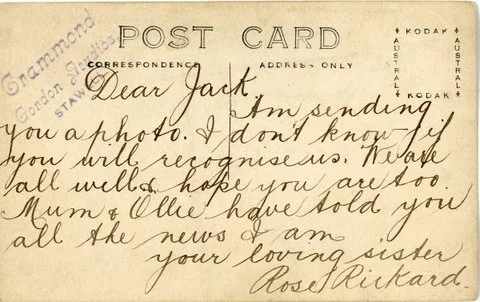 Grammond
Gordon Studios
STAWELL
POST CARD
CORRESPONDENCE
ADDRESS ONLY
KODAK
AUSTRALIA
AUSTRALIA
KODAK
Dear Jack,
Am sending
you a photo. I don't know if
you will recognise us. We are
all well & hope you are too.
Mum & Ollie have told you
all the news I am
your loving sister
Rose Rickard.